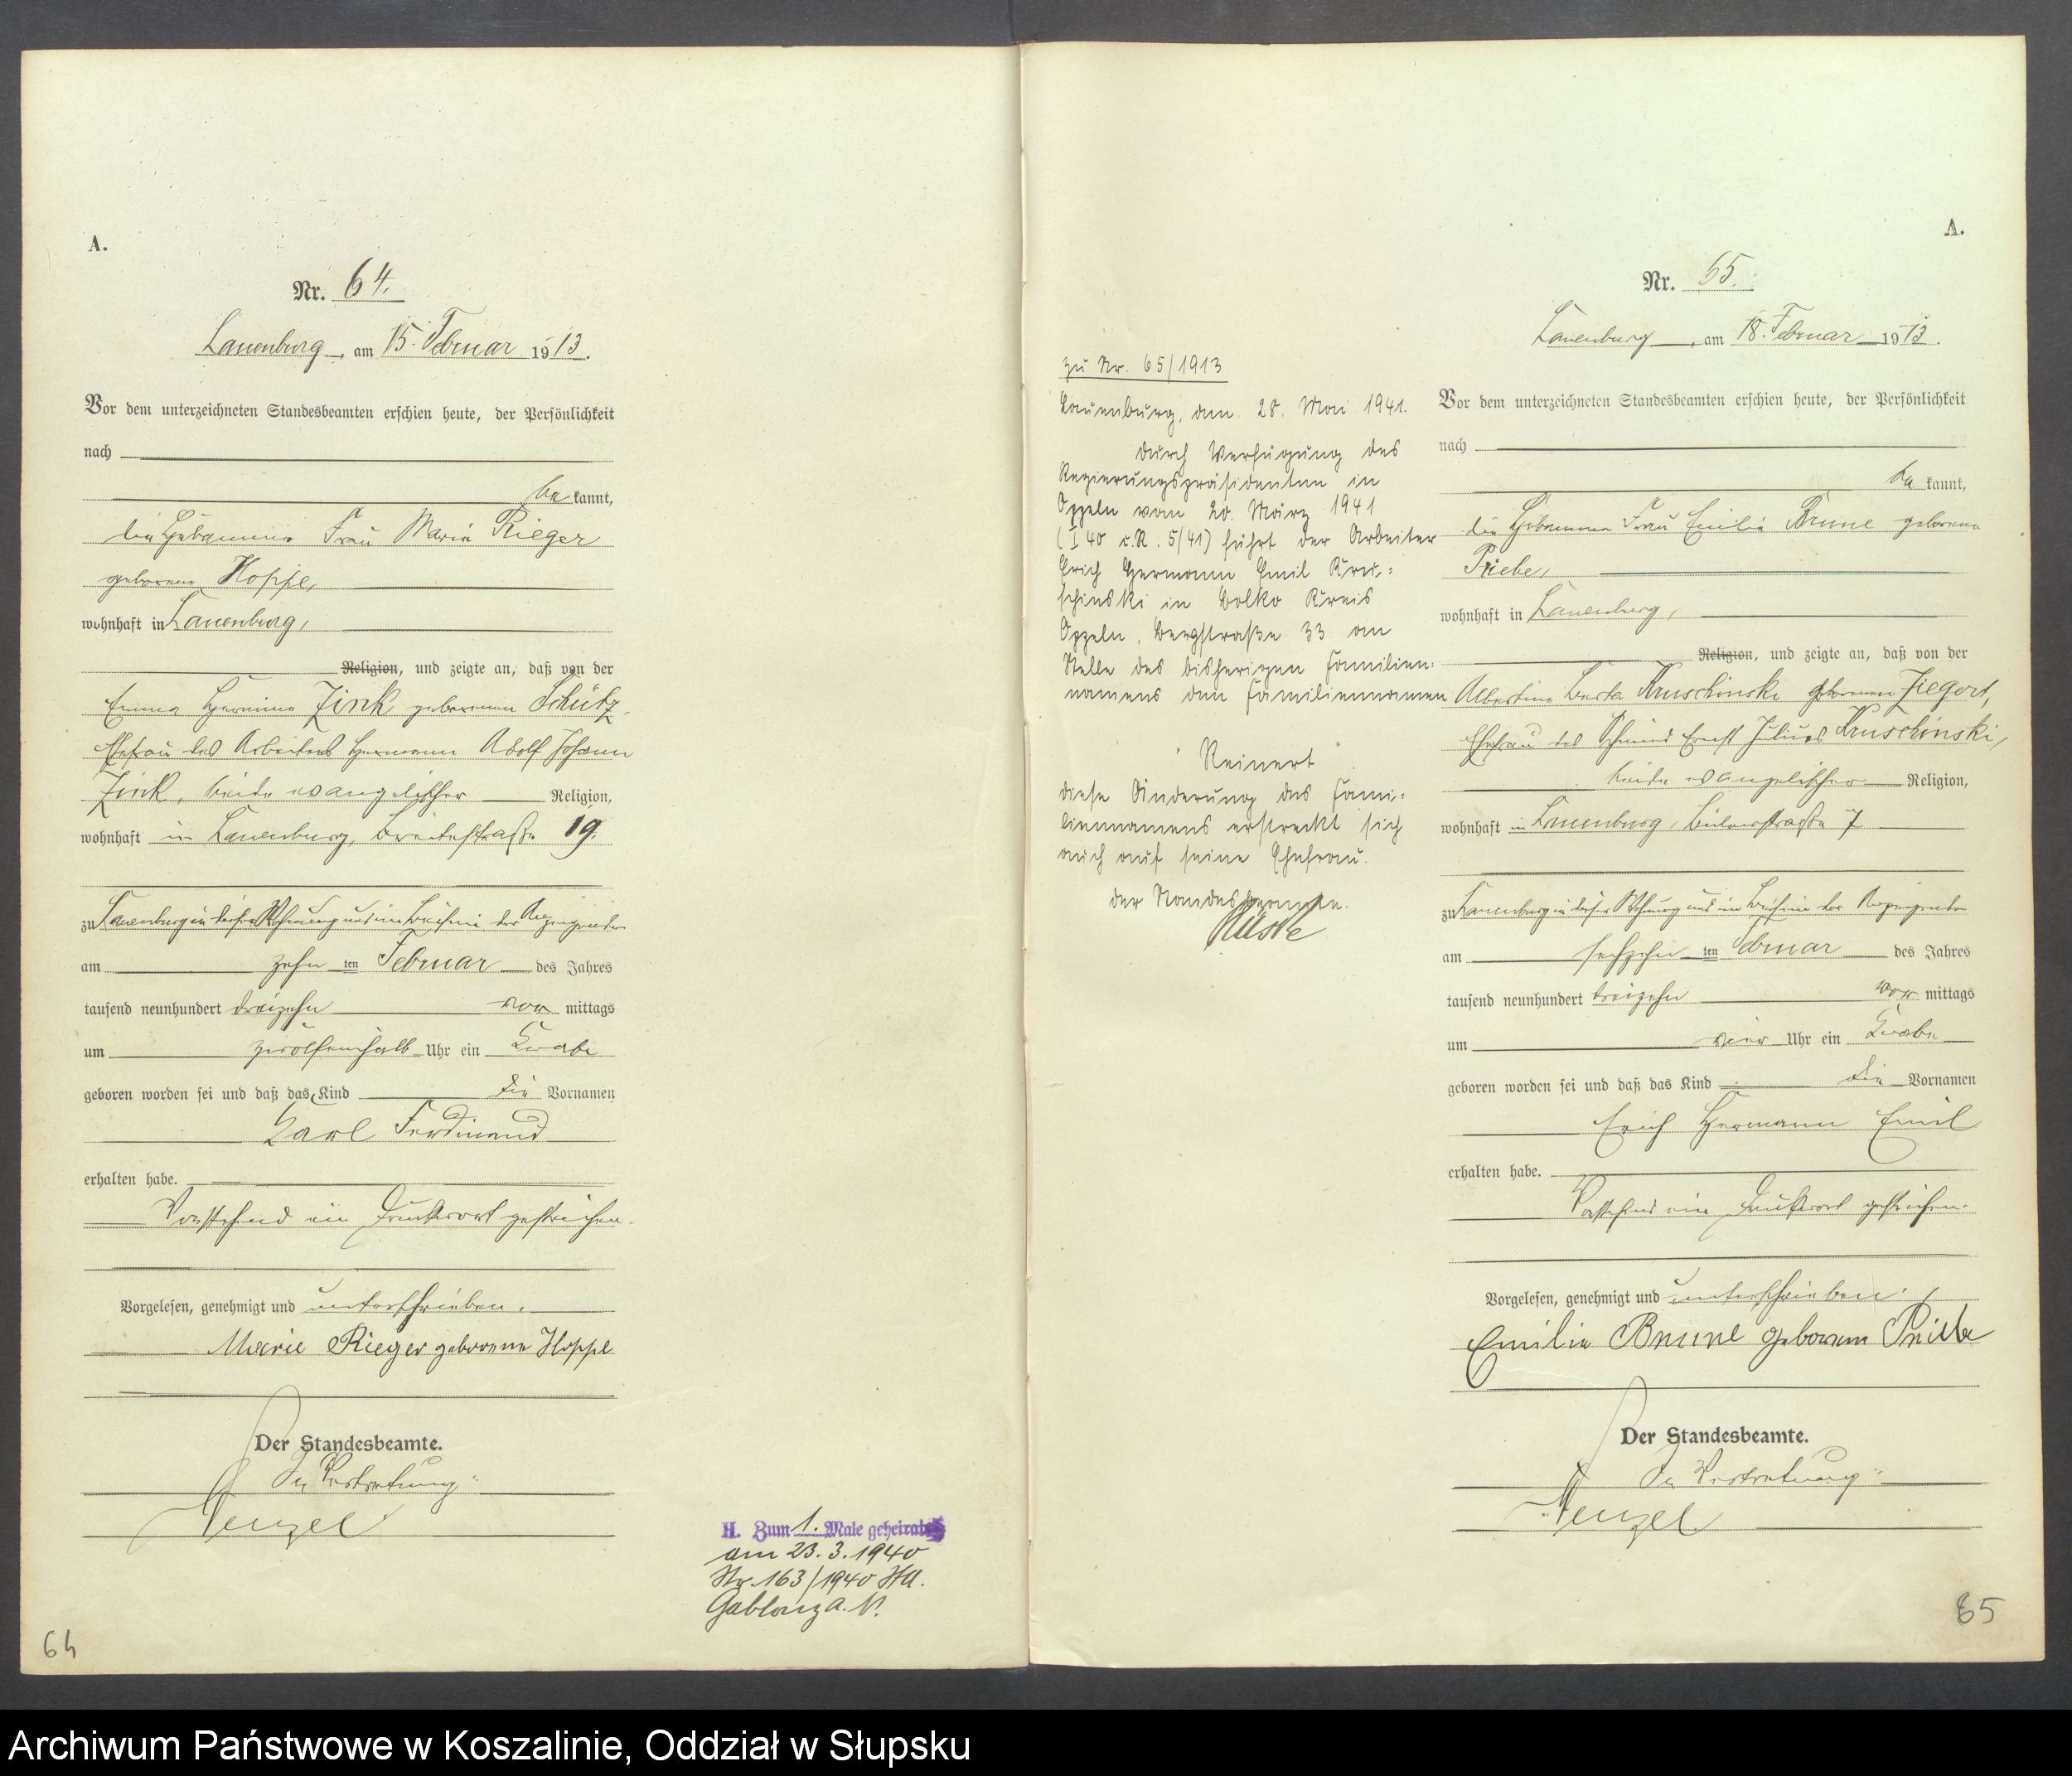 A.
Nr. 64.
Lauenburg, am 15. Februar 1913.
Vor dem unterzeichneten Standesbeamten erschien heute, der Persönlichkeit
nach
be kannt,
die Hebamme Frau Marie Rieger
geborene Hoppe,
wohnhaft in Lauenburg,
Religion, und zeigte an, daß von der
Emma Hermine Zink geborenen Schütz,
Ehefrau des Arbeiters Hermann Adolf Johann
Zink, beide evangelischer Religion,
wohnhaft in Lauenburg, Breitestraße 19.
zu Lauenburg in dieser Wohnung und im Beisein der Anzeigenden
am zehn ten Februar des Jahres
tausend neunhundert dreizehn vor mittags
um zwölfeinhalb Uhr ein Knabe
geboren worden sei und daß das Kind die Vornamen
Carl Ferdinand
erhalten habe.
Vorstehend ein Druckwort gestrichen.
Vorgelesen, genehmigt und unterschrieben.
Marie Rieger geborene Hoppe
Der Standesbeamte.
In Vertretung:
Wenzel
64
H. Zum 1. Male geheiratet
am 23.3.1940
Nr. 163/1940 StA.
Gablonz a. N.
zu Nr. 65/1913
Lauenburg, den 28. Mai 1941.
Durch Verfügung des
Regierungspräsidenten in
Oppeln vom 20. März 1941
(I 40 c.R. 5/41) führt der Arbeiter
Erich Hermann Emil Kru-
schinski in Bolko Kreis
Oppeln, Bergstraße 33 an
Stelle des bisherigen Familien-
namens den Familiennamen
"Reinert"
Diese Änderung des Fami-
liennamens erstreckt sich
auch auf seine Ehefrau.
Der Standesbeamte.
A.
Nr. 65.
Lauenburg, am 18. Februar 1913.
Vor dem unterzeichneten Standesbeamten erschien heute, der Persönlichkeit
nach
be kannt,
die Hebamme Frau Emilie Brune geborene
Priebe,
wohnhaft in Lauenburg,
Religion, und zeigte an, daß von der
Albertine Berta Kruschinski geborenen Ziegert,
Ehefrau des Schmied Ernst Julius Kruschinski,
beide evangelischer Religion,
wohnhaft in Lauenburg, Bülowstraße 7
zu Lauenburg in dieser Wohnung und im Beisein der Anzeigenden
am sechzehn ten Februar des Jahres
tausend neunhundert dreizehn vor mittags
um vier Uhr ein Knabe
geboren worden sei und daß das Kind die Vornamen
Erich Hermann Emil
erhalten habe.
Vorstehend ein Druckwort gestrichen.
Vorgelesen, genehmigt und unterschrieben.
Emilie Brune geborene Priebe
Der Standesbeamte.
In Vertretung:
Wenzel
65
Archiwum Państwowe w Koszalinie, Oddział w Słupsku